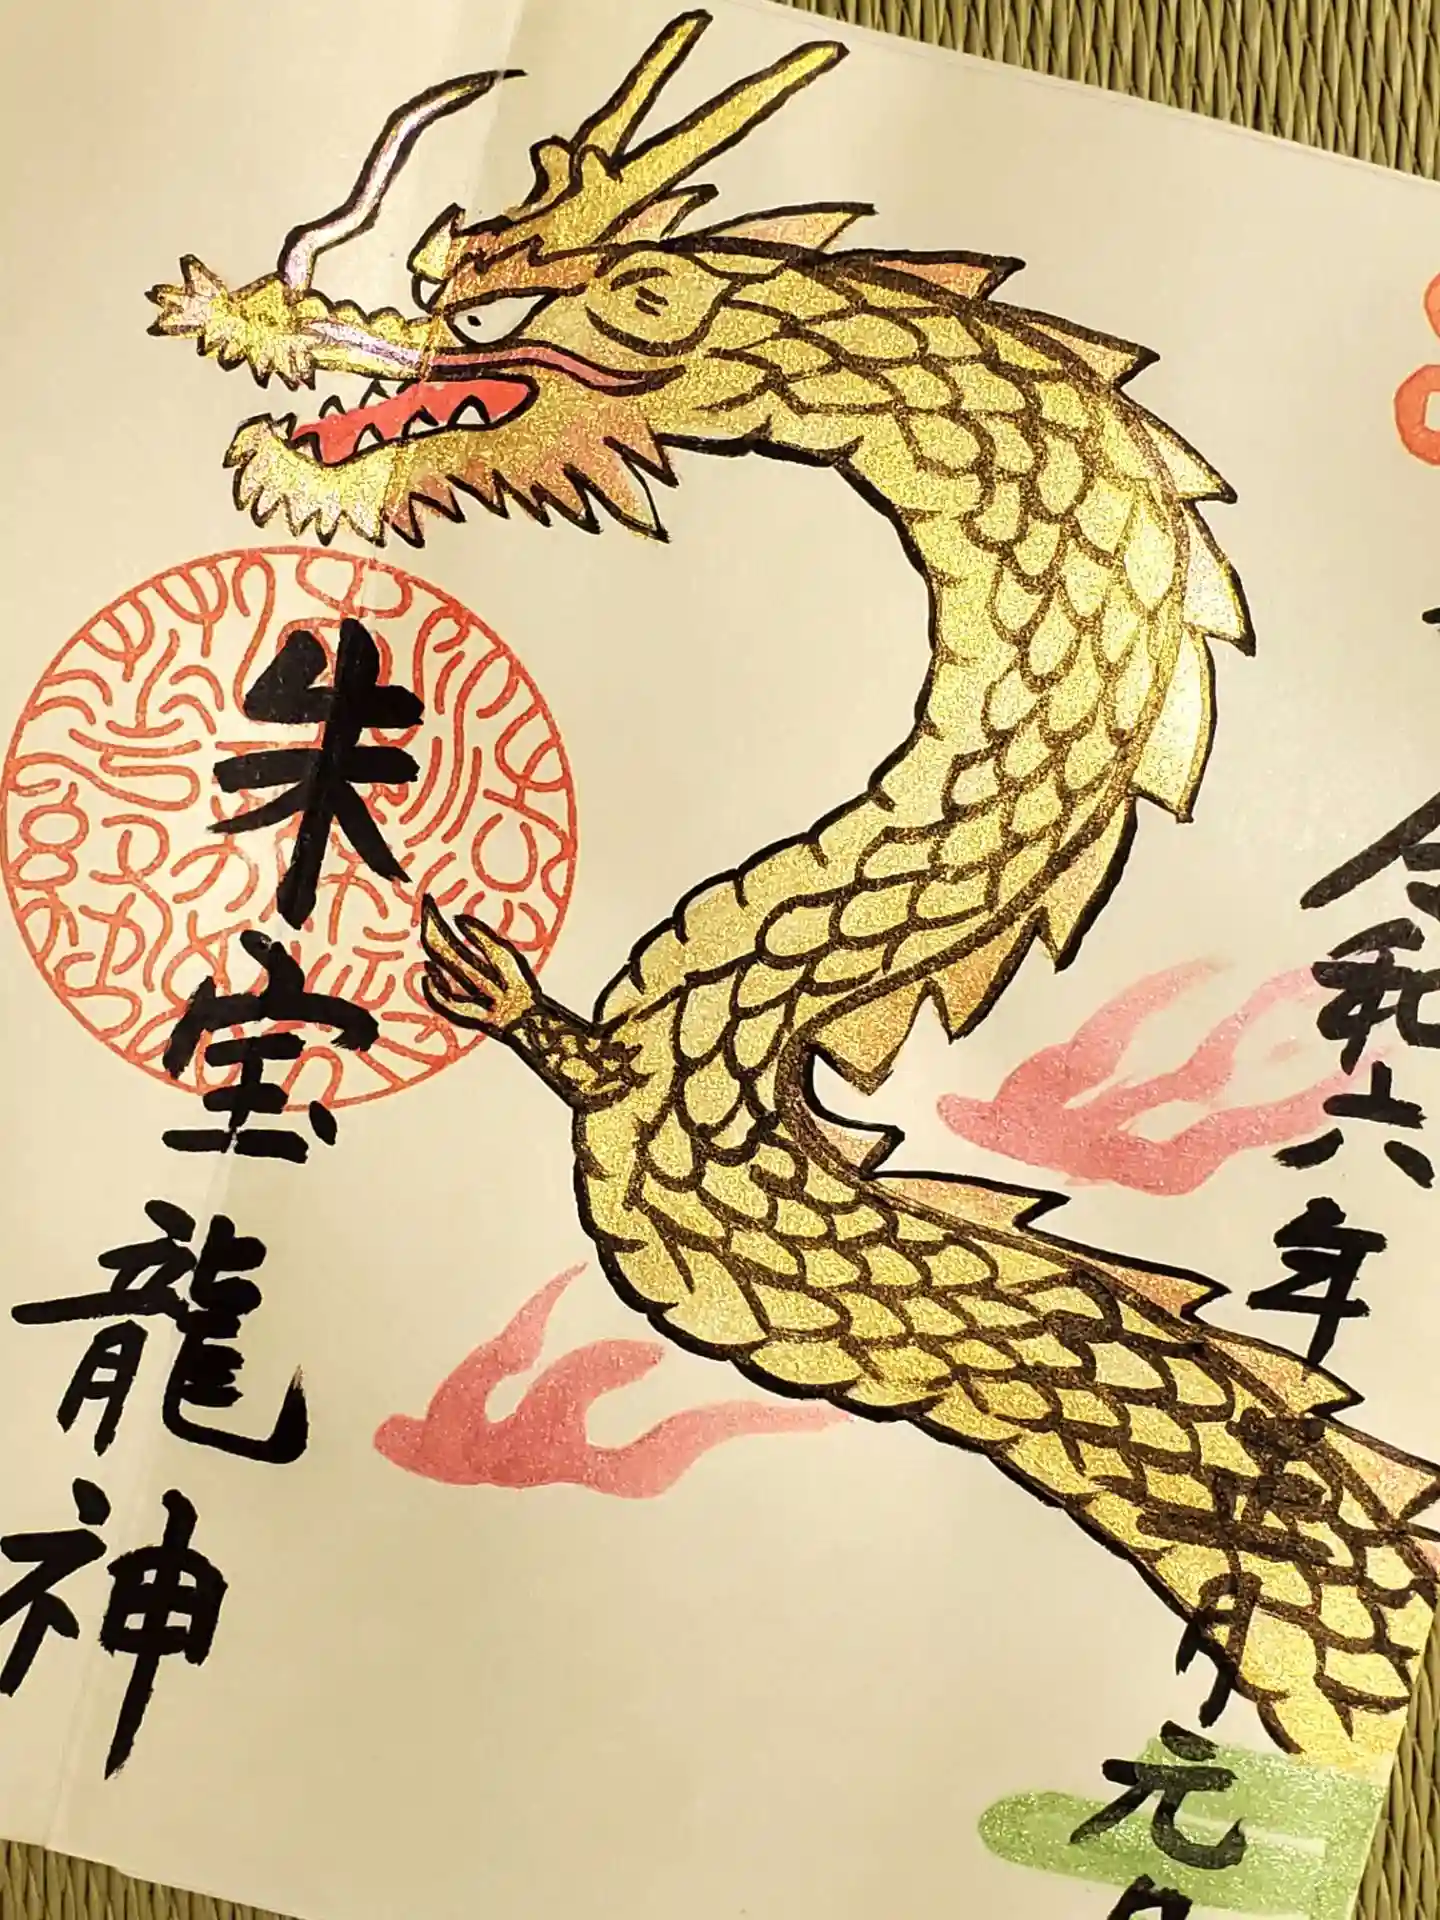 令和六年
月元
朱宝龍神